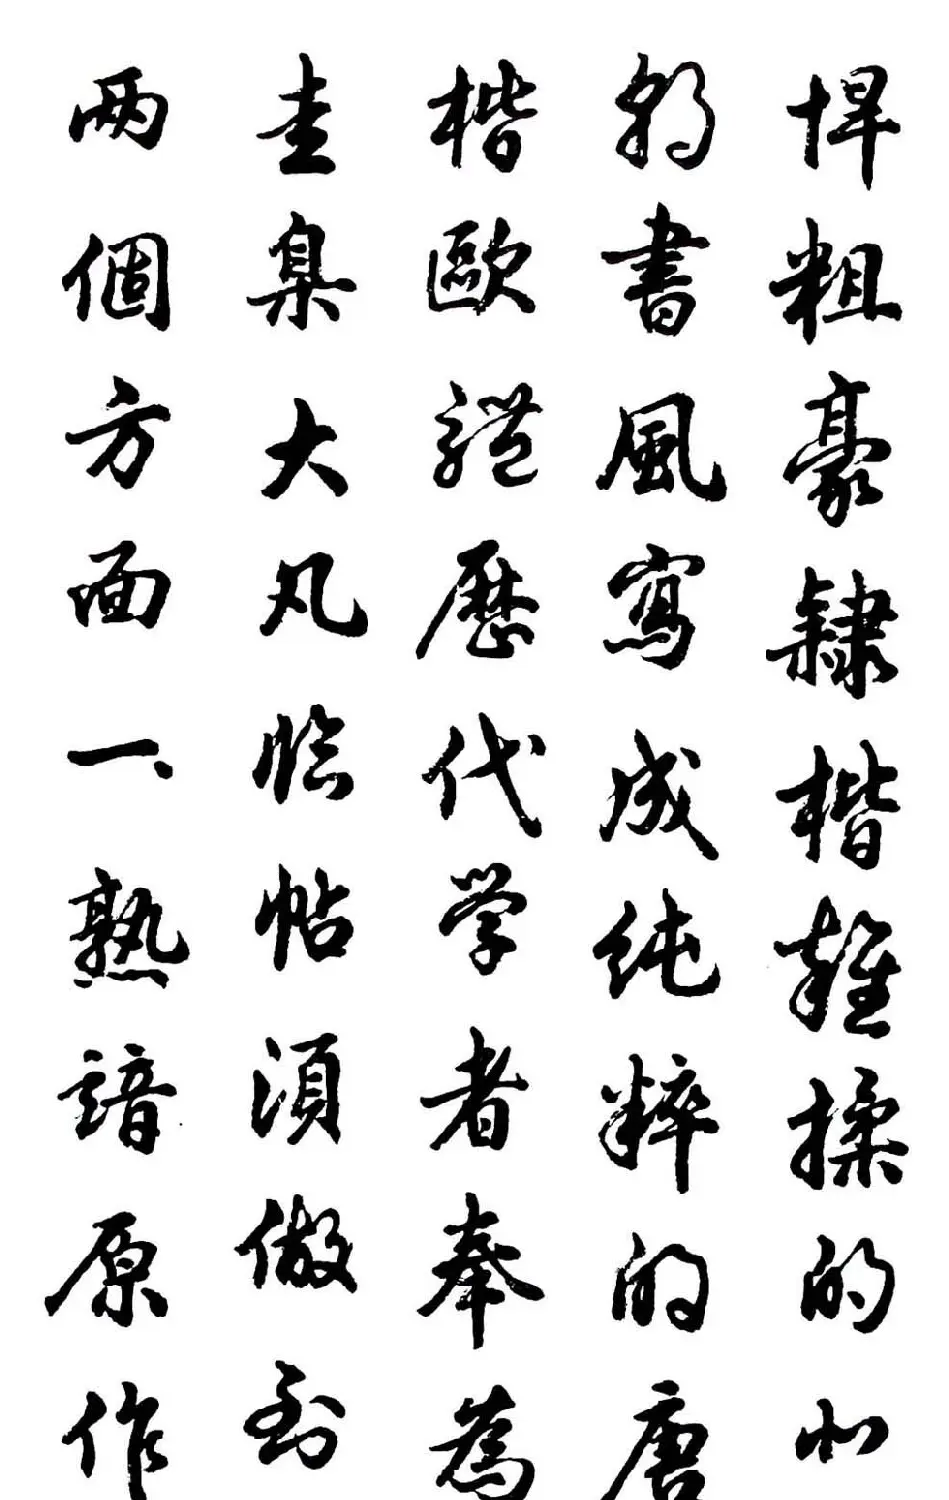 悍粗豪隸楷雜揉的北
朝書風寫成純粹的唐
楷歐體歷代学者奉為
圭臬大凡臨帖須做到
两個方面一、熟諳原作